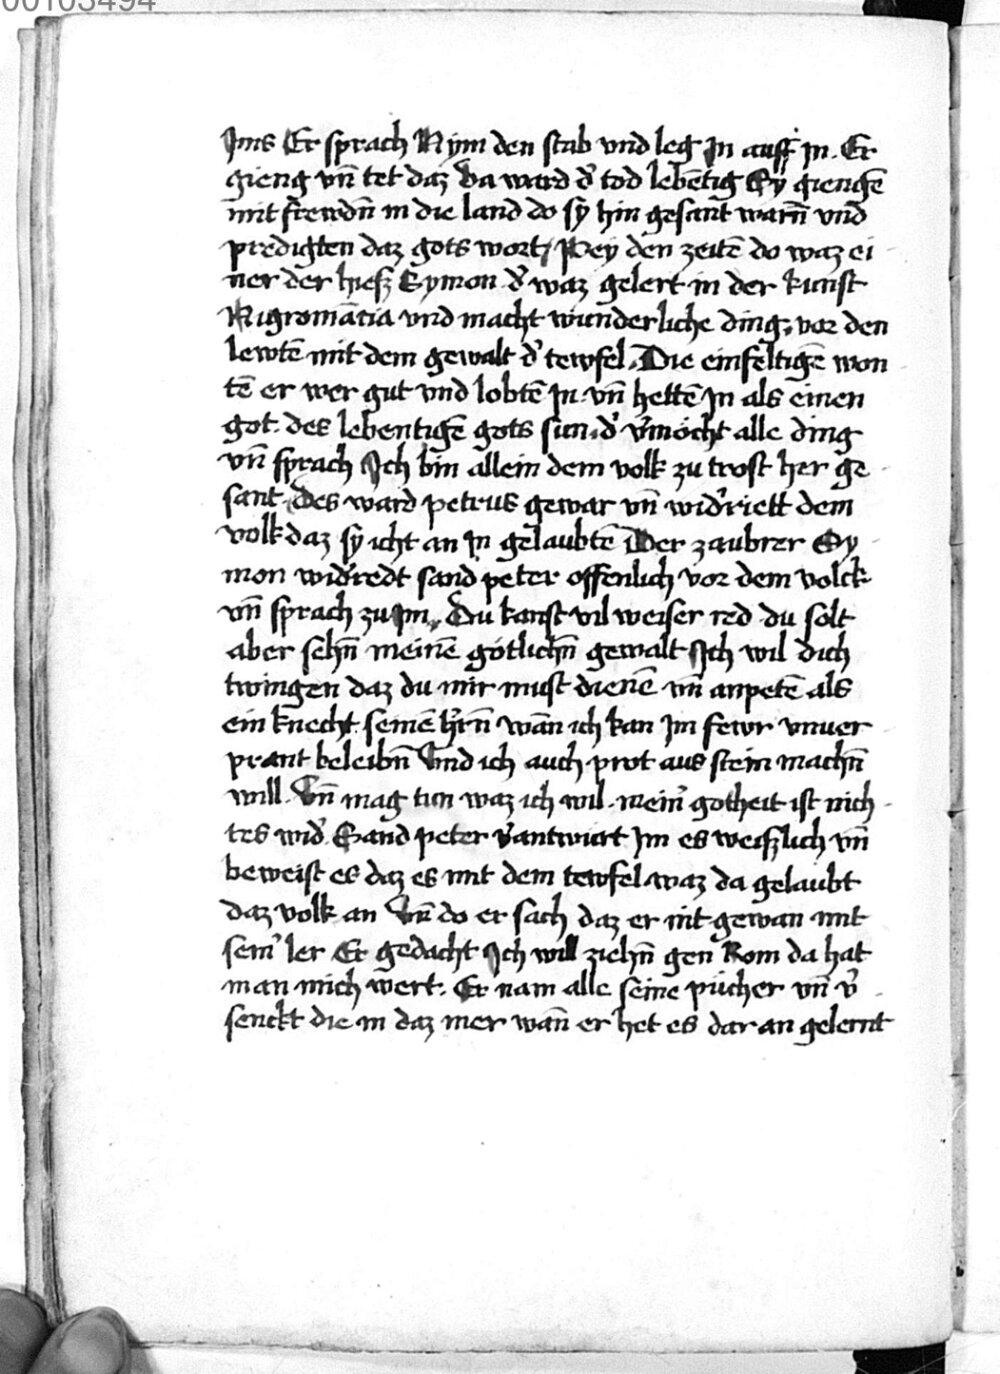 00103494
Jms Er sprach Nym den stab vnd leg Jn auff Jn. Er
gieng vn̄ tet daz Da ward d' tod lebentig Sÿ giengē
mit frewdn̄ in die land do sy hin gesant warn̄ vnd
predigten daz gots wort, Pey den zeitē do waz ei
ner der hiesz Symon d' waz gelert in der kunst
Nigromācia vnd macht wunderliche ding, vor den
lewtē mit dem gewalt d' tewfel. Die einfeltigē won
tē er wer gut vnd lobtē Jn. vn̄ hettē Jn als einen
got. des lebentigē gots sun. d' v'möcht alle ding
vn̄ sprach Jch bin allein dem volk zu trost her ge
sant. Des ward petrus gewar vn̄ wid'riett dem
volk daz sy icht an Jn gelaubtē Der zaubrer Sy
mon wid'redt sand peter offenlich vor dem volck
vn̄ sprach zu Jm. Du kanst vil weiser red du solt
aber sehn̄ meinē götlichn̄ gewalt Jch wil dich
twingen daz du mir must dienē vn̄ anpetē als
ein knecht. seinē h'rn̄ wān ich kan Jm fewr vnuer
prant beleibn̄ Vnd ich auch prot aus stein machn̄
will. Vn̄ mag tun waz ich wil. mein' gotheit ist nich
tes wid'. Sand peter v'antwurt Jm es weiszlich vn̄
beweist es daz es mit dem tewfel waz da gelaubt
daz volk an Vn̄ do er sach daz er nit gewan mit
sein' ler Er gedacht Jch will ziehn̄ gen Rom da hat
man mich wert. Er nam alle seine pücher vn̄ v'
senckt die in daz mer wān er het es dar an gelernt